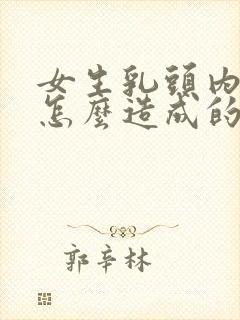 女生乳頭內
怎麼造成的
郭辛林